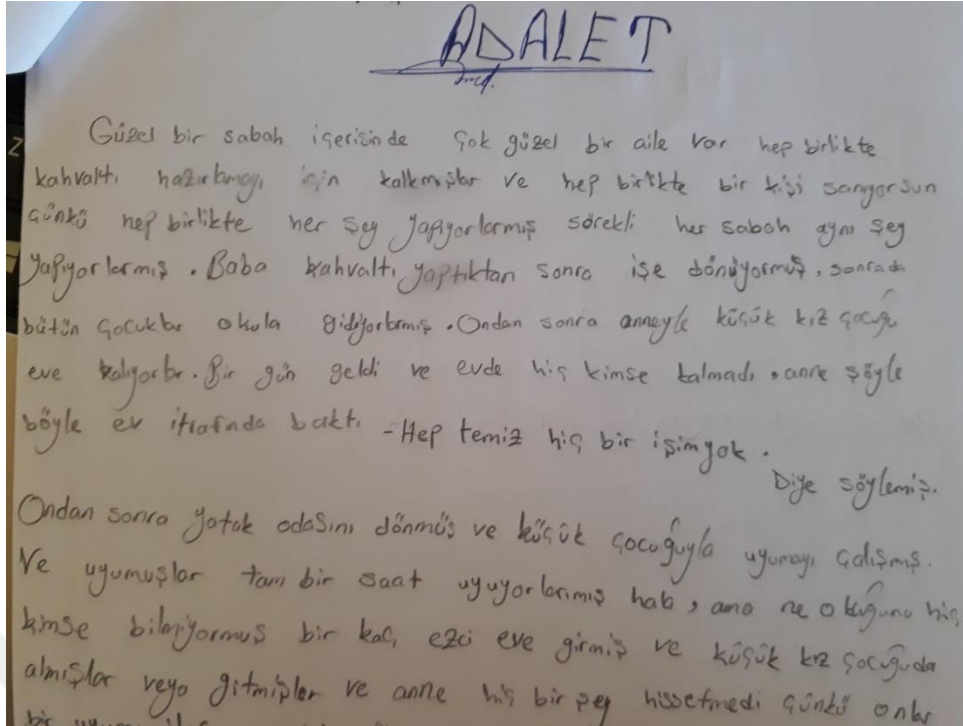 ADALET
Güzel bir sabah içerisinde çok güzel bir aile var hep birlikte
kahvaltı hazırlamayı için kalkmışlar ve hep birlikte bir kişi sanıyorsun
çünkü hep birlikte her şey yapıyorlarmış sörekli her sabah aynı şey
yapıyorlarmış. Baba kahvaltı yaptıktan sonra işe dönüyormuş, sonrada
bütün çocuklar okula gidiyorlarmış. Ondan sonra anneyle küçük kız çocuğu
eve kalıyorlar. Bir gün geldi ve evde hiç kimse kalmadı, anne şöyle
böyle ev itrafında baktı -Hep temiz hiç bir işim yok.
Diye söylemiş.
Ondan sonra yatak odasını dönmüş ve küçük çocuğuyla uyumayı çalışmış.
Ve uyumuşlar tam bir saat uyuyorlarımış hala, ama ne hiç
kimse bilmiyormuş bir kaç ezci eve girmiş ve küçük kız çocuğuda
almışlar veya gitmişler ve anne hiç bir şey hissetmedi çünkü onlar
bir